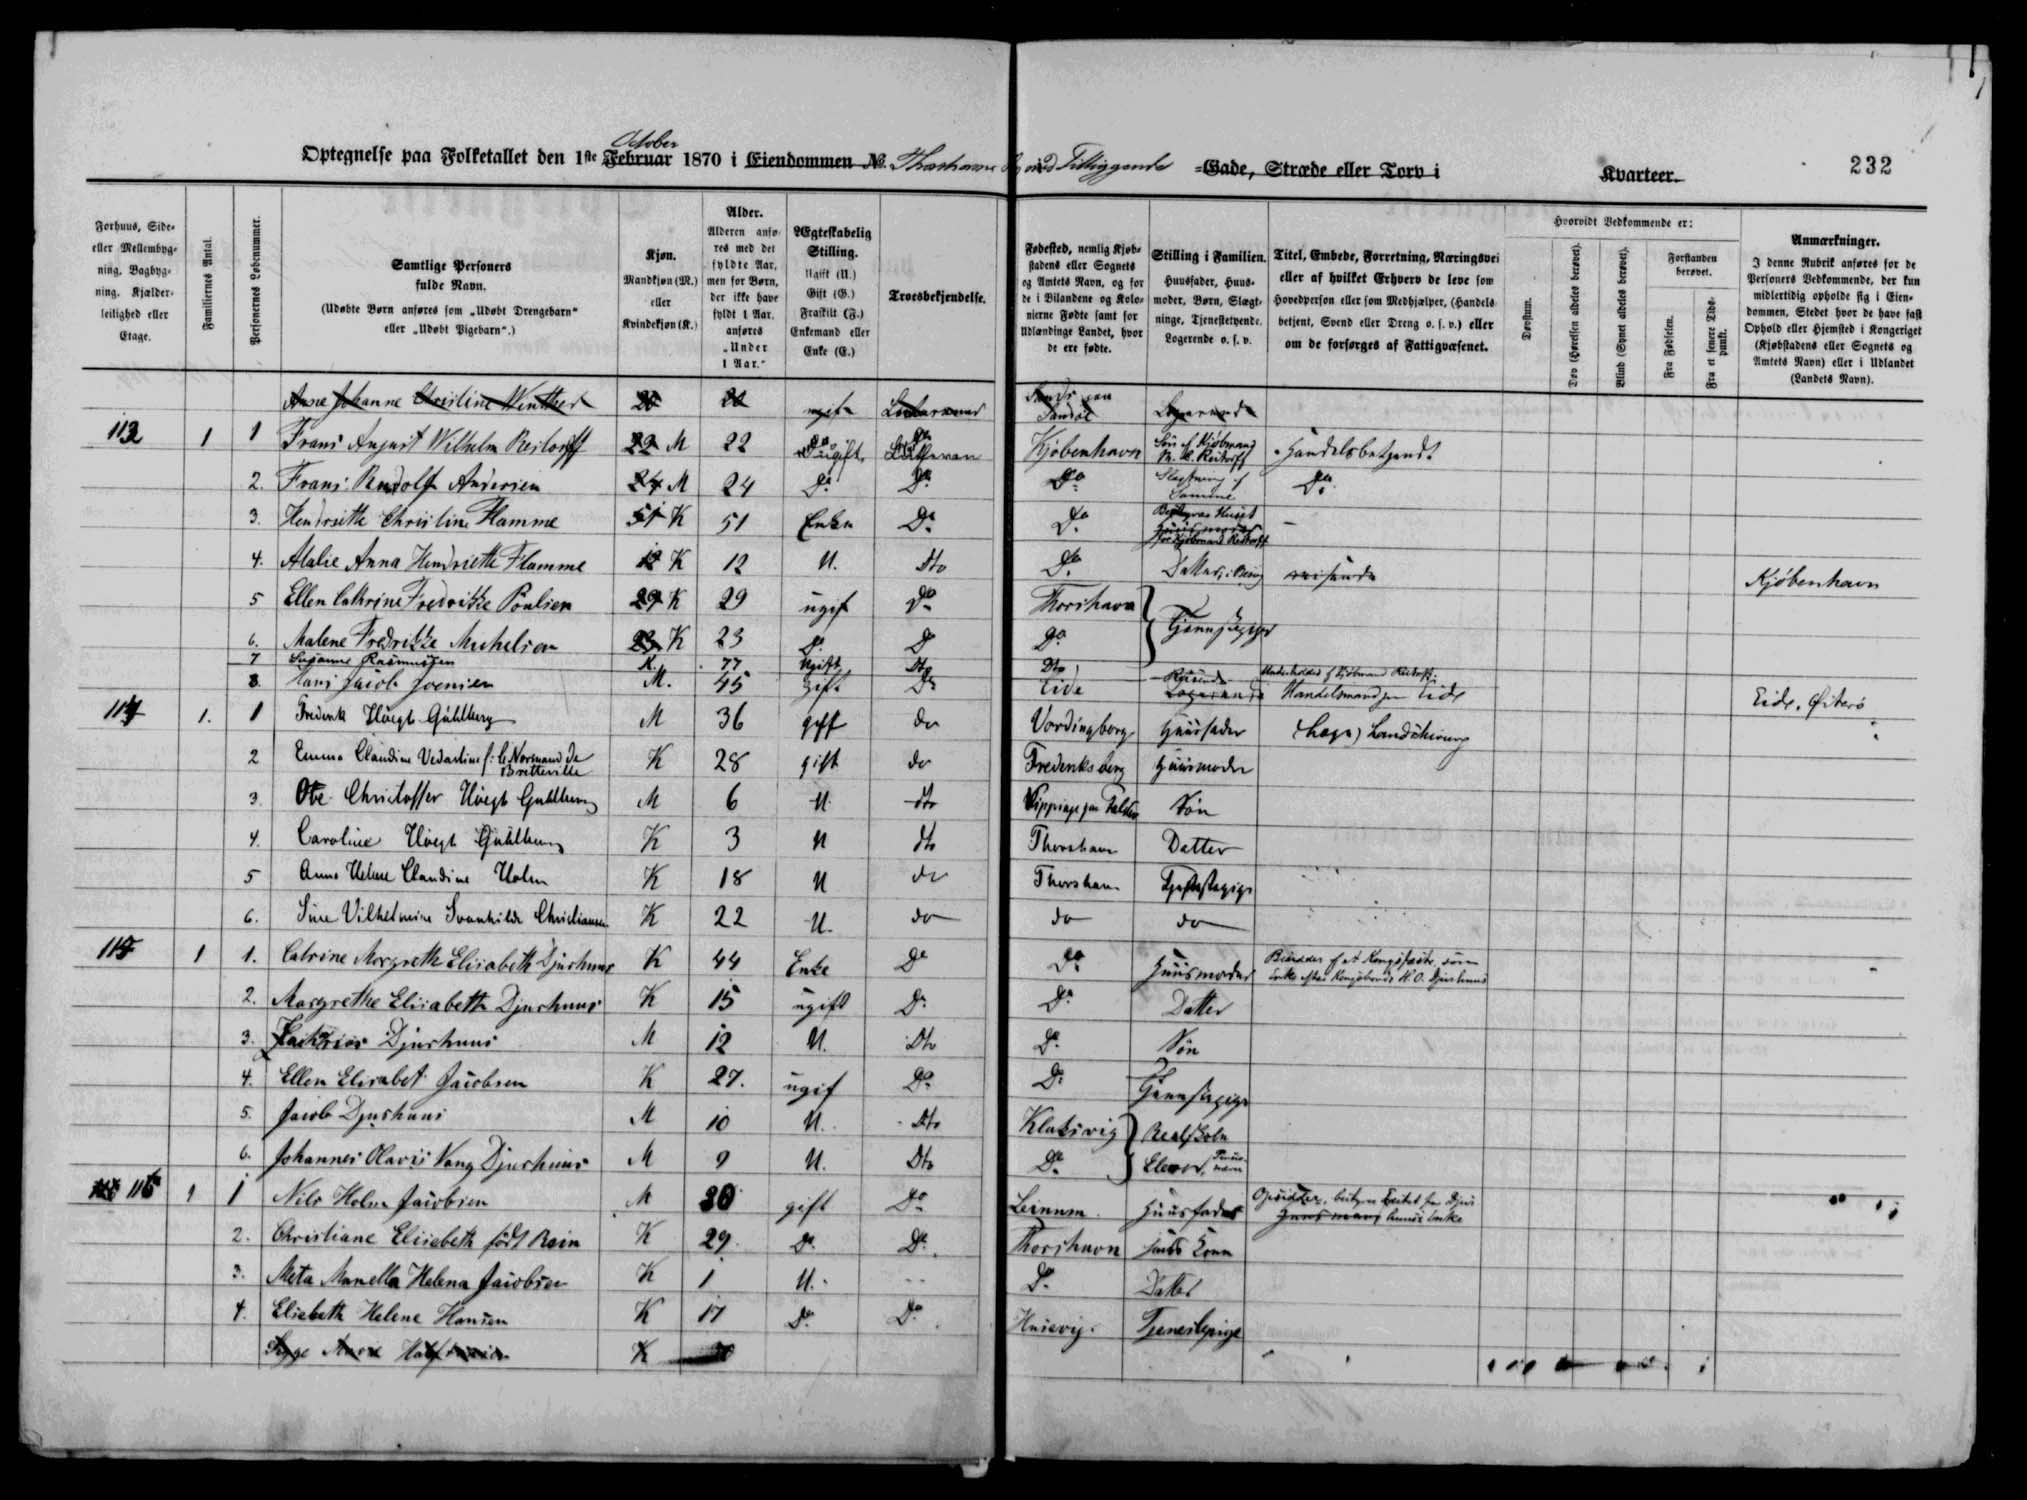 232
October
Optegnelse paa Folketallet den 1ste Februar 1870 i Eiendommen No. Thorshavn By med Tilliggende =Gade, Stræde eller Torv i Kvarteer.
Forhuus, Side= eller Mellembyg= ning, Bagbyg= ning, Kjælder= leilighed eller Etage.
Familiernes Antal.
Personernes Løbenummer.
Samtlige Personers fulde Navn.
(Udøbte Børn anføres som „Udøbt Drengebarn“ eller „Udøbt Pigebarn“.)
Kjøn.
Mandkjøn (M.) eller Kvindekjøn (K.)
Alder.
Alderen anfø= res med det fyldte Aar, men for Børn, der ikke have fyldt 1 Aar, anføres „Under 1 Aar.“
Ægteskabelig Stilling.
Ugift (U.) Gift (G.) Fraskilt (F.) Enkemand eller Enke (E.)
Troesbekjendelse.
Fødested, nemlig Kjøb= stadens eller Sognets og Amtets Navn, og for de i Bilandene og Kolo= nierne Fødte samt for Udlændinge Landet, hvor de ere fødte.
Stilling i Familien.
Huusfader, Huus= moder, Børn, Slægt= ninge, Tjenestetyende, Logerende o. s. v.
Titel, Embede, Forretning, Næringsvei eller af hvilket Erhverv de leve som Hovedperson eller som Medhjælper, (Handels= betjent, Svend eller Dreng o. s. v.) eller om de forsørges af Fattigvæsenet.
Hvorvidt Vedkommende er:
Døvstum.
Døv (Hørelsen aldeles berøvet).
Blind (Synet aldeles berøvet).
Forstanden berøvet.
Fra Fødselen.
Fra et senere Tids= punkt.
Anmærkninger.
I denne Rubrik anføres for de Personers Vedkommende, der kun midlertidig opholde sig i Eien= dommen, Stedet hvor de have fast Ophold eller Hjemsted i Kongeriget (Kjøbstadens eller Sognets og Amtets Navn) eller i Udlandet (Landets Navn).
Anne Johanne Christine Winther 20 ugift Sandø Logerende
1 1 Frans August Wilhelm Restorff 22 M 22 ugift Kjøbenhavn Søn af Kjøbmand Restorff Handelsbetjendt
2. Frans Rudolf Andersen 24 M 24 Do Do Do Slægtning af Samme Do
3. Hendriette Christine Flamme 51 K 51 Enke Do Do Bestyrer Huset for Kjøbmand Restorff
4. Alalie Anna Hendriette Flamme 12 K 12 U. Dto Do Datter Kjøbenhavn
5 Ellen Cathrine Fredrikke Poulsen 29 K 29 ugif Do Thorshavn
6. Malene Fredrikke Michelsen 23 K 23 Do Do Do
7 Susanne Rasmussen K. 77 Ugift Dto Dto Underholdes af Kjøbmand Restorff
8. Hans Jacob Joensen M. 45 gift Do Eide Reisende Logerende Handelsmand Eide Eide, Østerø
114 1. 1 Frederik Høegh Guldberg M 36 gift do Vordingborg Huusfader (Læge) Landchirurg
2 Emma Claudine f: le Normand de Bretteville K 28 gift do Frederiksberg Huusmoder
3. Ove Christoffer Høegh Guldberg M 6 U. dto Søn
4. Caroline Høegh Guldberg K 3 U dto Thorshavn Datter
5 Anne Helene Claudine Holm K 18 U do Thorshavn Tjenestepige
6. Sine Vilhelmine Svanhilde Christiansen K 22 U. do do do
115 1 1. Catrine Morgrethe Elisabeth Djurhuus K 44 Enke Do Do Huusmoder
2. Margrethe Elisabeth Djurhuus K 15 ugift Do Do Datter
3. Djurhuus M 12 U. Dto Do Søn
4. Ellen Elisabet Jacobsen K 27. ugif Do Do Tjenestepige
5. Jacob Djurhuus M 10 U. Dto Klaksvig Realskole
6. Johannes Olavus Vang Djurhuus M 9 U. Dto Do Elever
116 1 1 Nils Holm Jacobsen M 30 gift Do Leinum Huusfader
2. Christiane Elisebeth født Rein K 29. Do Do Thorshavn hans Kone
3. Meta Manella Helena Jacobsen K 1 U. Do Datter
4. Elisebeth Helene Hansen K 17 Do Do Husevig. Tjenestepige
K